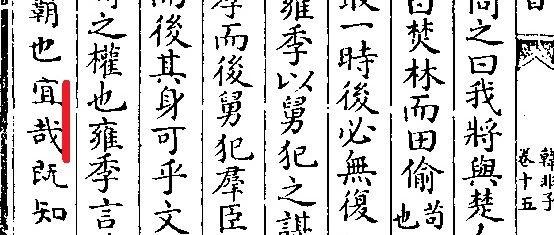 韓非子
卷十五
問之曰我將與楚人
曰焚林而田偷苟也
取一時後必無復
雍季以舅犯之謀
季而後舅犯羣臣
而後其身可乎文
時之權也雍季言
霸也宜哉既知